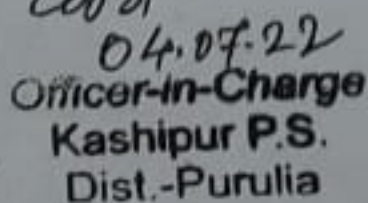 04.07.22
Officer-in-Charge
Kashipur P.S.
Dist.-Purulia